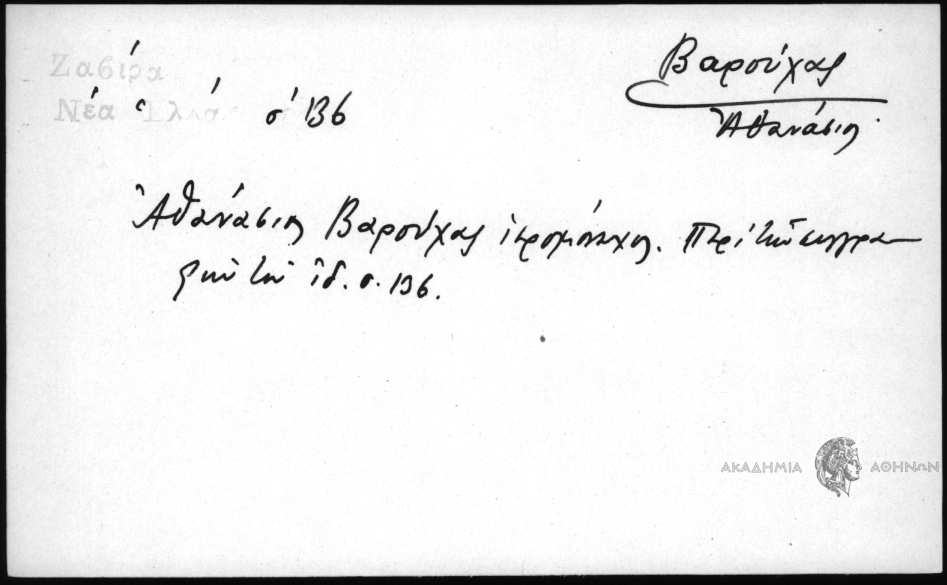 Ζαβίρα
Νέα Ἑλλάς σ 136
Βαρούχας
Ἀθανάσιος
Ἀθανάσιος Βαρούχας ἱερομόναχος. Περὶ τῶν συγγρα-
φῶν του ἰδ. σ. 136.
ΑΚΑΔΗΜΙΑ ΑΘΗΝΩΝ